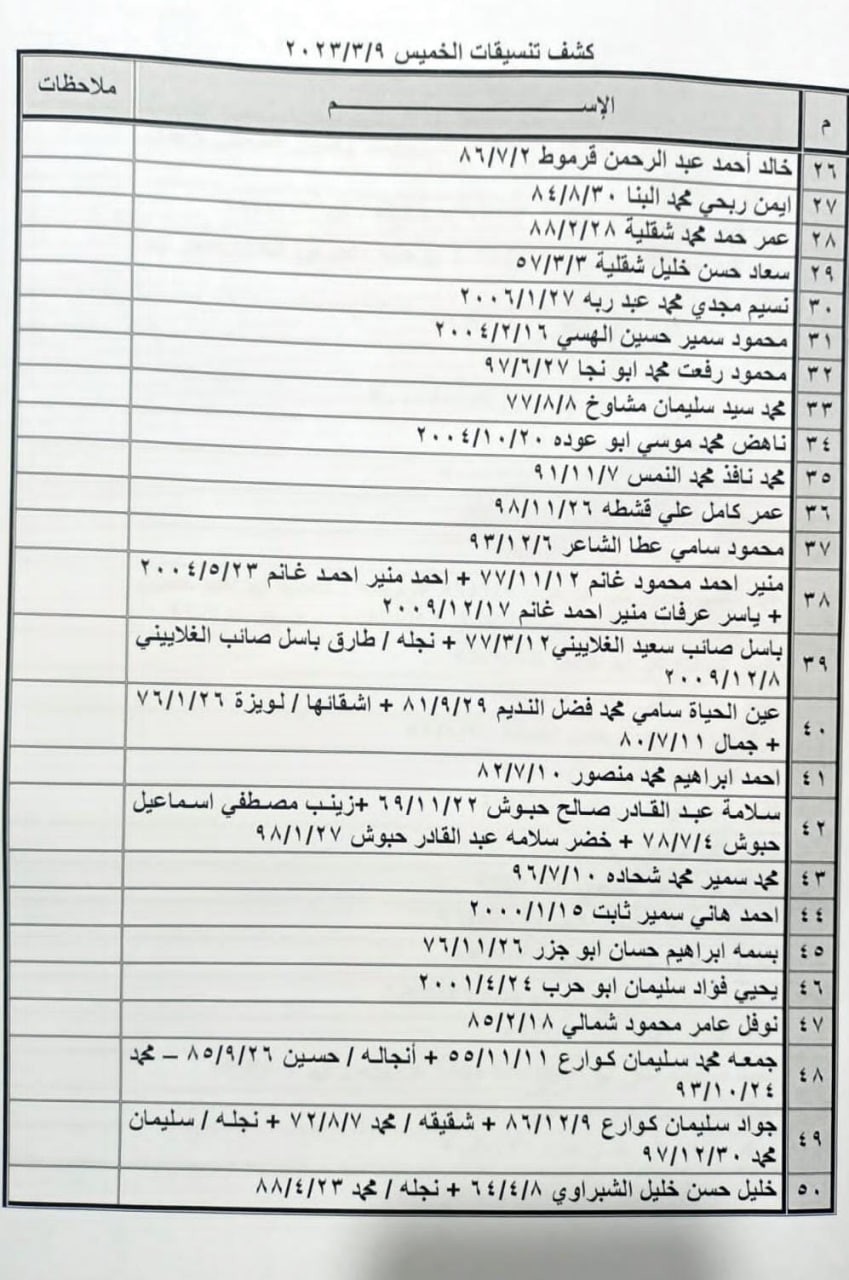 كشف تنسيقات الخميس ٢٠٢٣/٣/٩
م الإســــــم ملاحظات
٢٦ خالد أحمد عبد الرحمن قرموط ٨٦/٧/٢
٢٧ ايمن ربحي محمد البنا ٨٤/٨/٣٠
٢٨ عمر حمد محمد شقلية ٨٨/٢/٢٨
٢٩ سعاد حسن خليل شقلية ٥٧/٣/٣
٣٠ نسيم مجدي محمد عبد ربه ٢٠٠٦/١/٢٧
٣١ محمود سمير حسين الهسي ٢٠٠٤/٢/١٦
٣٢ محمود رفعت محمد ابو نجا ٩٧/٦/٢٧
٣٣ محمد سيد سليمان مشاوخ ٧٧/٨/٨
٣٤ ناهض محمد موسي ابو عوده ٢٠٠٤/١٠/٢٠
٣٥ محمد نافذ محمد النمس ٩١/١١/٧
٣٦ عمر كامل علي قشطه ٩٨/١١/٢٦
٣٧ محمود سامي عطا الشاعر ٩٣/١٢/٦
٣٨ منير احمد محمود غانم ٧٧/١١/١٢ + احمد منير احمد غانم ٢٠٠٤/٥/٢٣
+ ياسر عرفات منير احمد غانم ٢٠٠٩/١٢/١٧
٣٩ باسل صائب سعيد الغلاييني٧٧/٣/١٢ + نجله / طارق باسل صائب الغلاييني
٢٠٠٩/١٢/٨
٤٠ عين الحياة سامي محمد فضل النديم ٨١/٩/٢٩ + اشقائها / لويزة ٧٦/١/٢٦
+ جمال ٨٠/٧/١١
٤١ احمد ابراهيم محمد منصور ٨٢/٧/١٠
٤٢ سلامة عبد القادر صالح حبوش ٦٩/١١/٢٢ +زينب مصطفي اسماعيل
حبوش ٧٨/٧/٤ + خضر سلامه عبد القادر حبوش ٩٨/١/٢٧
٤٣ محمد سمير محمد شحاده ٩٦/٧/١٠
٤٤ احمد هاني سمير ثابت ٢٠٠٠/١/١٥
٤٥ بسمه ابراهيم حسان ابو جزر ٧٦/١١/٢٦
٤٦ يحيي فؤاد سليمان ابو حرب ٢٠٠١/٤/٢٤
٤٧ نوفل عامر محمود شمالي ٨٥/٢/١٨
٤٨ جمعه محمد سليمان كوارع ٥٥/١١/١١ + أنجاله / حسين ٨٥/٩/٢٦ – محمد
٩٣/١٠/٢٤
٤٩ جواد سليمان كوارع ٨٦/١٢/٩ + شقيقه / محمد ٧٢/٨/٧ + نجله / سليمان
محمد ٩٧/١٢/٣٠
٥٠ خليل حسن خليل الشبراوي ٦٤/٤/٨ + نجله / محمد ٨٨/٤/٢٣